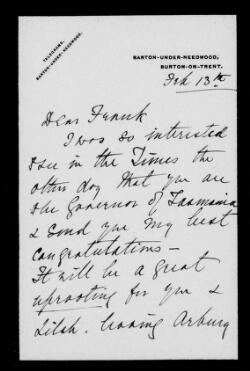 TELEGRAMS,
BARTON-UNDER-NEEDWOOD.
BARTON-UNDER-NEEDWOOD,
BURTON-ON-TRENT.
Feb 13th
Dear Frank
I was so interested
to see in the Times the
other day that you are
the Governor of Tasmania
& send you my best
congratulations -
It will be a great
uprooting for you &
Lilah. leaving Arbury